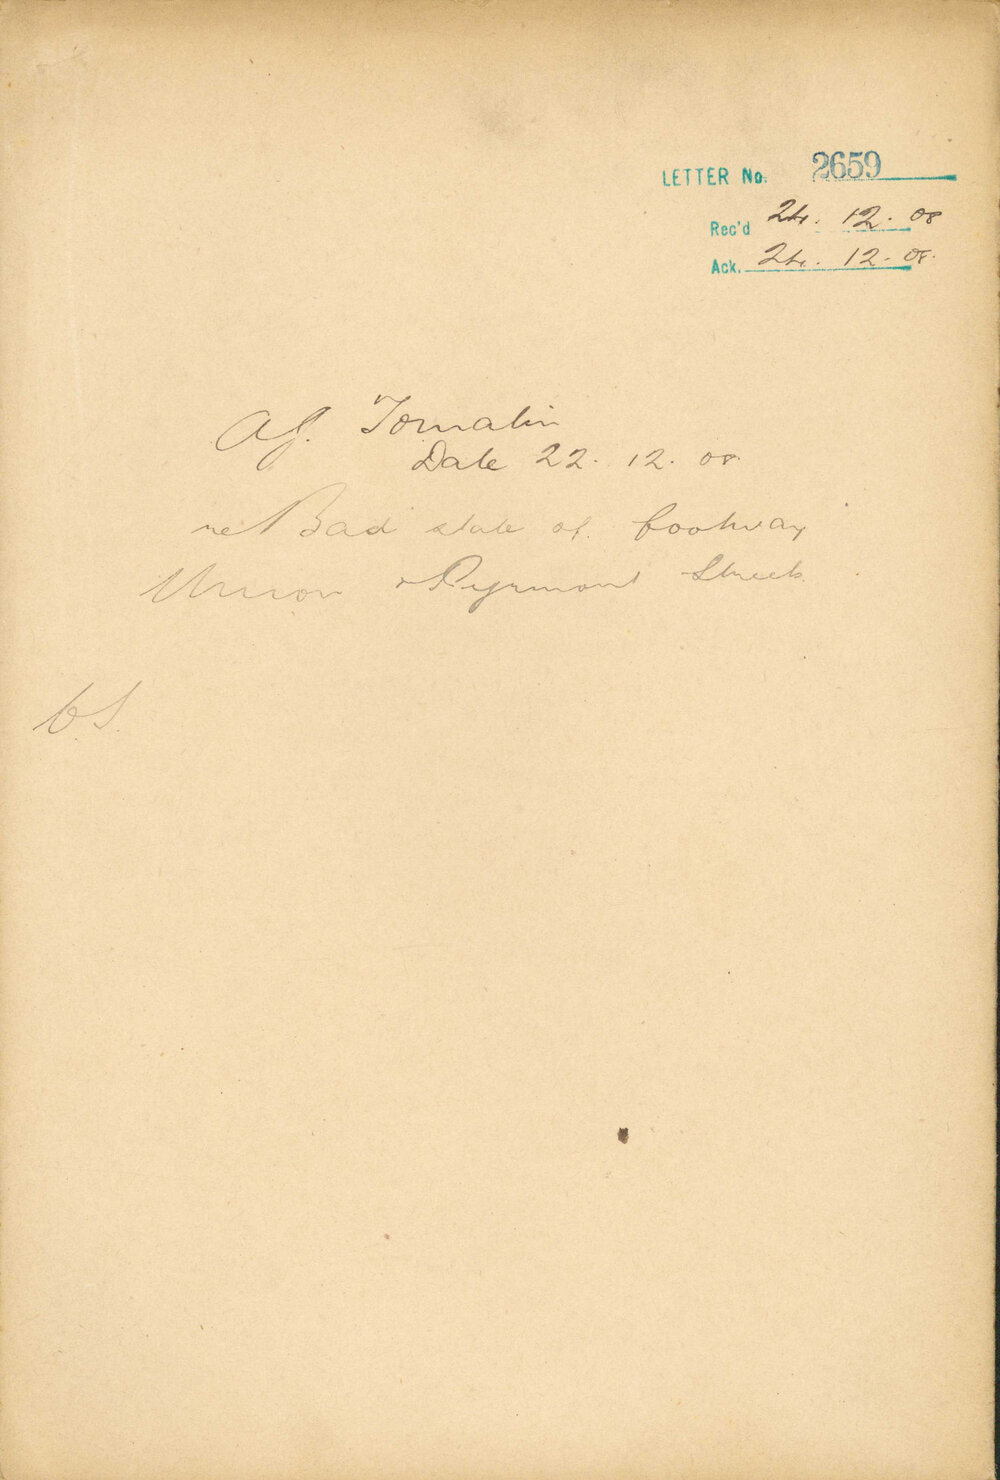 LETTER No. 2659
Rec'd 24. 12. 08
Ack. 24. 12. 08.
A J. Tomalin
Date 22. 12. 08.
re Bad state of footway
Union & Pyrmont Streets.
C.S.